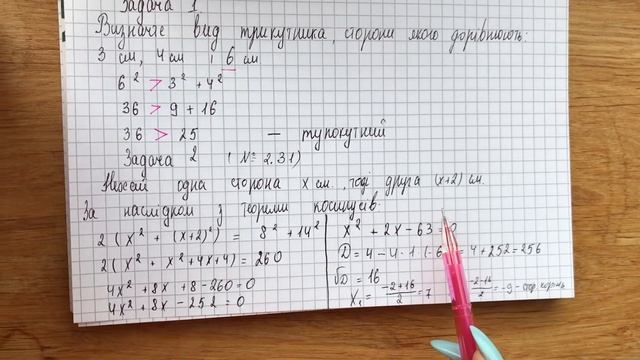 Задача 1
Визначте вид трикутника, сторони якого дорівнюють:
3 см, 4 см і 6 см
6² > 3² + 4²
36 > 9 + 16
36 > 25 — тупокутний
Задача 2 (№ 2.31)
Нехай одна сторона x см, тоді друга (x+2) см.
За наслідком з теореми косинусів:
2(x² + (x+2)²) = 8² + 14²
2(x² + x² + 4x + 4) = 260
4x² + 8x + 8 - 260 = 0
4x² + 8x - 252 = 0
x² + 2x - 63 = 0
D = 4 - 4 · 1 · (-6 = 4 + 252 = 256
√D = 16
x₁ = (-2+16)/2 = 7 (-2-16)/2 = -9 -